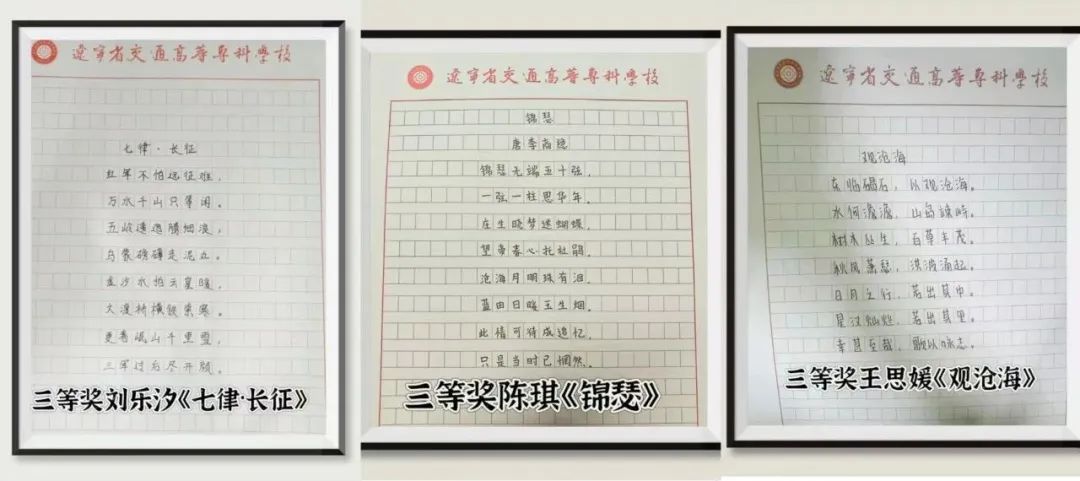 遼寧省交通高等專科學校
七律·长征
红军不怕远征难，
万水千山只等闲。
五岭逶迤腾细浪，
乌蒙磅礴走泥丸。
金沙水拍云崖暖，
大渡桥横铁索寒。
更喜岷山千里雪，
三军过后尽开颜。
三等奖刘乐汐《七律·长征》
遼寧省交通高等專科學校
锦瑟
唐李商隐
锦瑟无端五十弦，
一弦一柱思华年。
庄生晓梦迷蝴蝶，
望帝春心托杜鹃。
沧海月明珠有泪，
蓝田日暖玉生烟。
此情可待成追忆，
只是当时已惘然。
三等奖陈琪《锦瑟》
遼寧省交通高等專科學校
观沧海
东临碣石，以观沧海。
水何澹澹，山岛竦峙。
树木丛生，百草丰茂。
秋风萧瑟，洪波涌起。
日月之行，若出其中。
星汉灿烂，若出其里。
幸甚至哉，歌以咏志。
三等奖王思媛《观沧海》